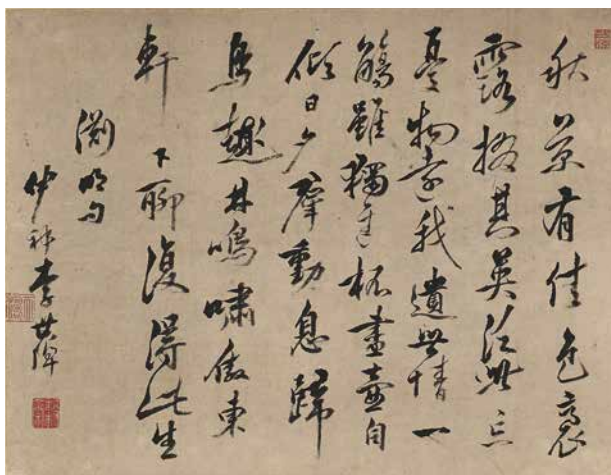 秋菊有佳色裛
露掇其英汎此忘
憂物遠我遺世情一
觴雖獨進杯盡壺自
傾日夕羣動息歸
鳥趨林鳴嘯傲東
軒下聊復得此生
淵明句
李世